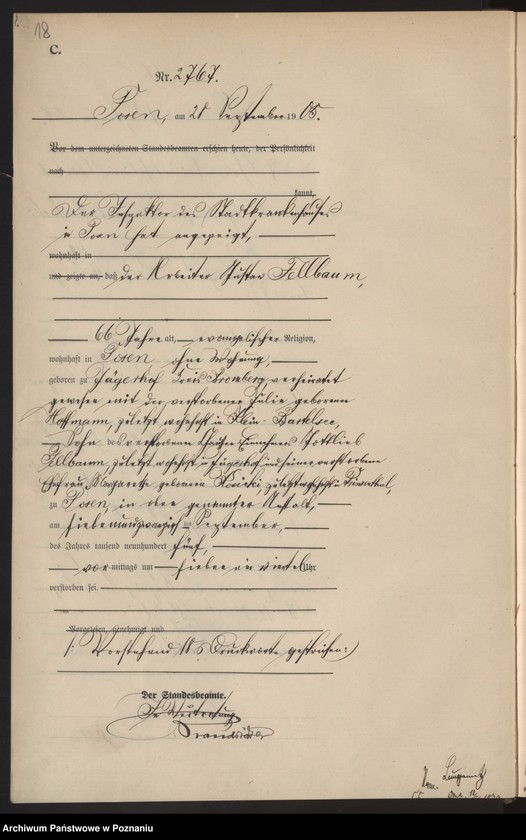 18
C.
Nr. 2767.
Posen, am 28 September 1905.
Vor dem unterzeichneten Standesbeamten erschien heute, der Persönlichkeit
nach
kannt,
Der Inspektor des Stadtkrankenhauses
in Posen hat angezeigt,
wohnhaft in
und zeigte an, daß der Arbeiter Gustav Fellbaum,
66 Jahre alt, evangelischer Religion,
wohnhaft in Posen ohne Wohnung,
geboren zu Jägerhof Kreis Bromberg, verheiratet
gewesen mit der verstorbenen Julie geborenen
Hoffmann, zuletzt wohnhaft in Klein-Bartelsee,
Sohn des verstorbenen Gottlieb
Fellbaum, zuletzt wohnhaft in Jägerhof und seiner verstorbenen
Ehefrau Margarete geborenen zuletzt wohnhaft in
zu Posen, in oben genannter Anstalt,
am siebenundzwanzigsten September,
des Jahres tausend neunhundert fünf,
vormittags um sieben ein viertel Uhr
verstorben sei.
Vorgelesen, genehmigt und
/: Vorstehend Druckworte gestrichen :/
Der Standesbeamte.
In Vertretung
Archiwum Państwowe w Poznaniu